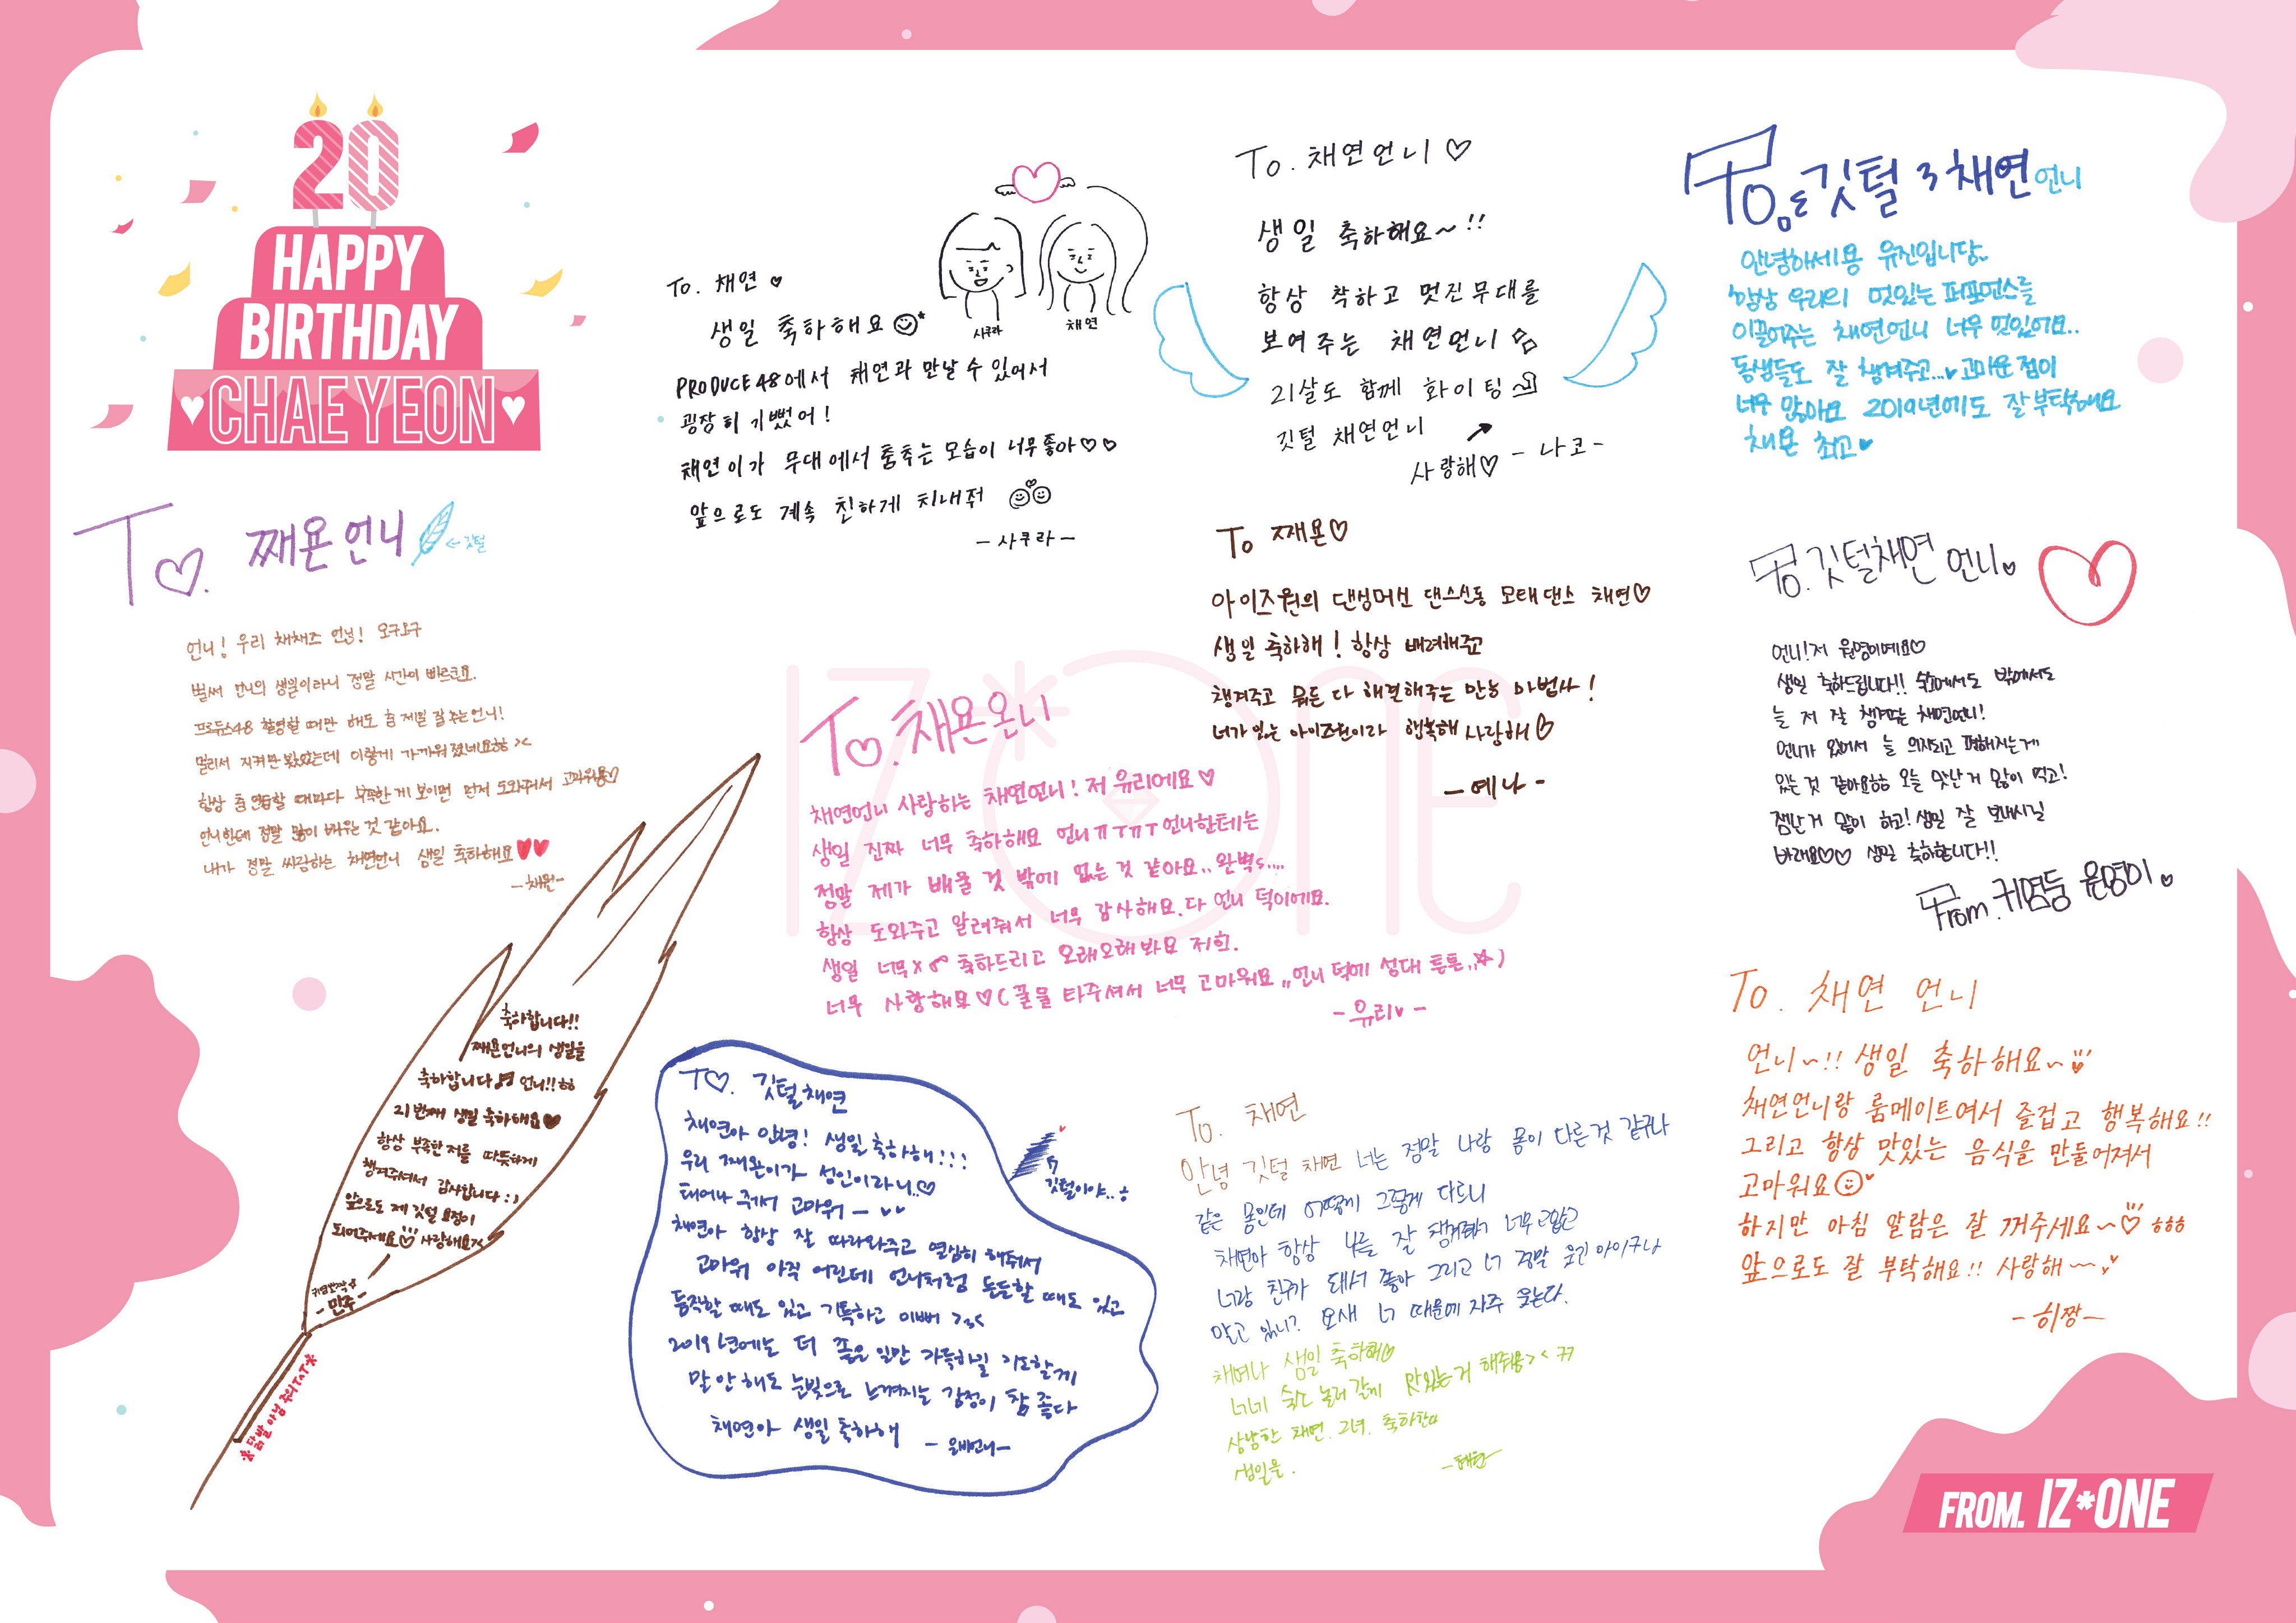 20
HAPPY
BIRTHDAY
CHAEYEON
To. 채연 ♡
생일 축하해요
PRODUCE48에서 채연과 만날 수 있어서
굉장히 기뻤어!
채연이가 무대에서 춤추는 모습이 너무좋아♡♡
앞으로도 계속 친하게 지내줘
-사쿠라-
사쿠라
채연
To. 채연언니♡
생일 축하해요~!!
항상 착하고 멋진무대를
보여주는 채연언니
21살도 함께 화이팅
깃털 채연언니
사랑해♡ -나코-
To. 깃털 채연언니
안녕하세용 유진입니당..
항상 우리의 멋있는 퍼포먼스를
이끌어주는 채연언니 너무 멋있어요..
동생들도 잘 챙겨주고...♥ 고마운 점이
너무 많아요 2019년에도 잘부탁해요
채욘 최고♥
To. 쨰욘언니
←깃털
언니! 우리 채채즈 언닝! 오구오구
벌써 언니의 생일이라니 정말 시간이 빠르군요.
프로듀스48 촬영할 때만 해도 춤 제일 잘 추는 언니!
멀리서 지켜만 봤었는데 이렇게 가까워졌네요ㅎㅎ ><
항상 춤 연습할 때마다 부족한 게 보이면 먼저 도와줘서 고마워용♡
언니한테 정말 많이 배우는 것 같아요.
내가 정말 싸랑하는 채연언니 생일 축하해요♥♥
-채원-
To 쨰욘♡
아이즈원의 댄싱머신 댄스신동 모태댄스 채연♡
생일 축하해! 항상 배려해주고
챙겨주고 뭐든 다 해결해주는 만능 마법사!
너가있는 아이즈원이라 행복해 사랑해♡
-예나-
To. 깃털채연 언니♥
언니!저 원영이예요♡
생일 축하드립니다!! 숙소에서도 밖에서도
늘 저 잘 챙겨주는 채연언니!
언니가 있어서 늘 의지되고 편해지는게
있는 것 같아요ㅎㅎ 오늘 맛난거 많이 먹고!
잼난거 많이 하고! 생일 잘 보내시길
바래요♡♡ 생일 축하합니다!!
From. 귀염둥 원영이♥
IZ*ONE
To. 채욘온니
채연언니 사랑하는 채연언니! 저 유리에요♡
생일 진짜 너무 축하해요 언니ㅠㅜㅠㅜ언니한테는
정말 제가 배울 것 밖에 없는 것 같아요..완벽s....
항상 도와주고 알려줘서 너무 감사해요.다 언니 덕이에요.
생일 너무x∞ 축하드리고 오래오래봐요 저희.
너무 사랑해요♡(꿀물 타주셔서 너무 고마워요,,언니 덕에 성대 튼튼,,☆)
-유리♥-
축하합니다!!
쨰욘언니의 생일을
축하합니다♬ 언니!!ㅎㅎ
21번째 생일 축하해요♥
항상 부족한 저를 따뜻하게
챙겨주셔서 감사합니다 :)
앞으로도 제 깃털 요정이
되어주세요♡ 사랑해요><
-민주-
※닭발 아님 주의TㅅT※
To. 깃털채연
채연아 안녕! 생일축하해!!!
우리 쨰욘이가 성인이라니..♡
태어나 줘서 고마워-
채연아 항상 잘 따라와주고 열심히 해줘서
고마워 아직 어린데 언니처럼 든든할 때도 있고
동작할 때도 있고 기특하고 이뻐 >3<
2019년에는 더 좋은 일만 가득하길 기도할게
말 안 해도 눈빛으로 느껴지는 감정이 참 좋다
채연아 생일축하해
-은비언니-
깃털이야..
To. 채연
안녕 깃털 채연 너는 정말 나랑 몸이 다른것 같구나
같은 몸인데 어떻게 그렇게 다르니
채연아 항상 나를 잘 챙겨줘서 너무고맙고
너랑 친구가 돼서 좋아 그리고 너 정말 웃긴 아이구나
알고 있니? 요새 너 때문에 자주 웃는다.
채여나 생일 축하해♡
너네 숙소 놀러 갈게 맛있는거 해줘용>< ㄲㄲ
상냥한 채연. 그녀. 축하한다
생일을.
-혜원-
To. 채연 언니
언니~!! 생일 축하해요~
채연언니랑 룸메이트여서 즐겁고 행복해요!!
그리고 항상 맛있는 음식을 만들어져서
고마워요
하지만 아침 알람은 잘 꺼주세요~♡ ㅎㅎㅎ
앞으로도 잘 부탁해요!! 사랑해~~
-히짱-
FROM. IZ*ONE